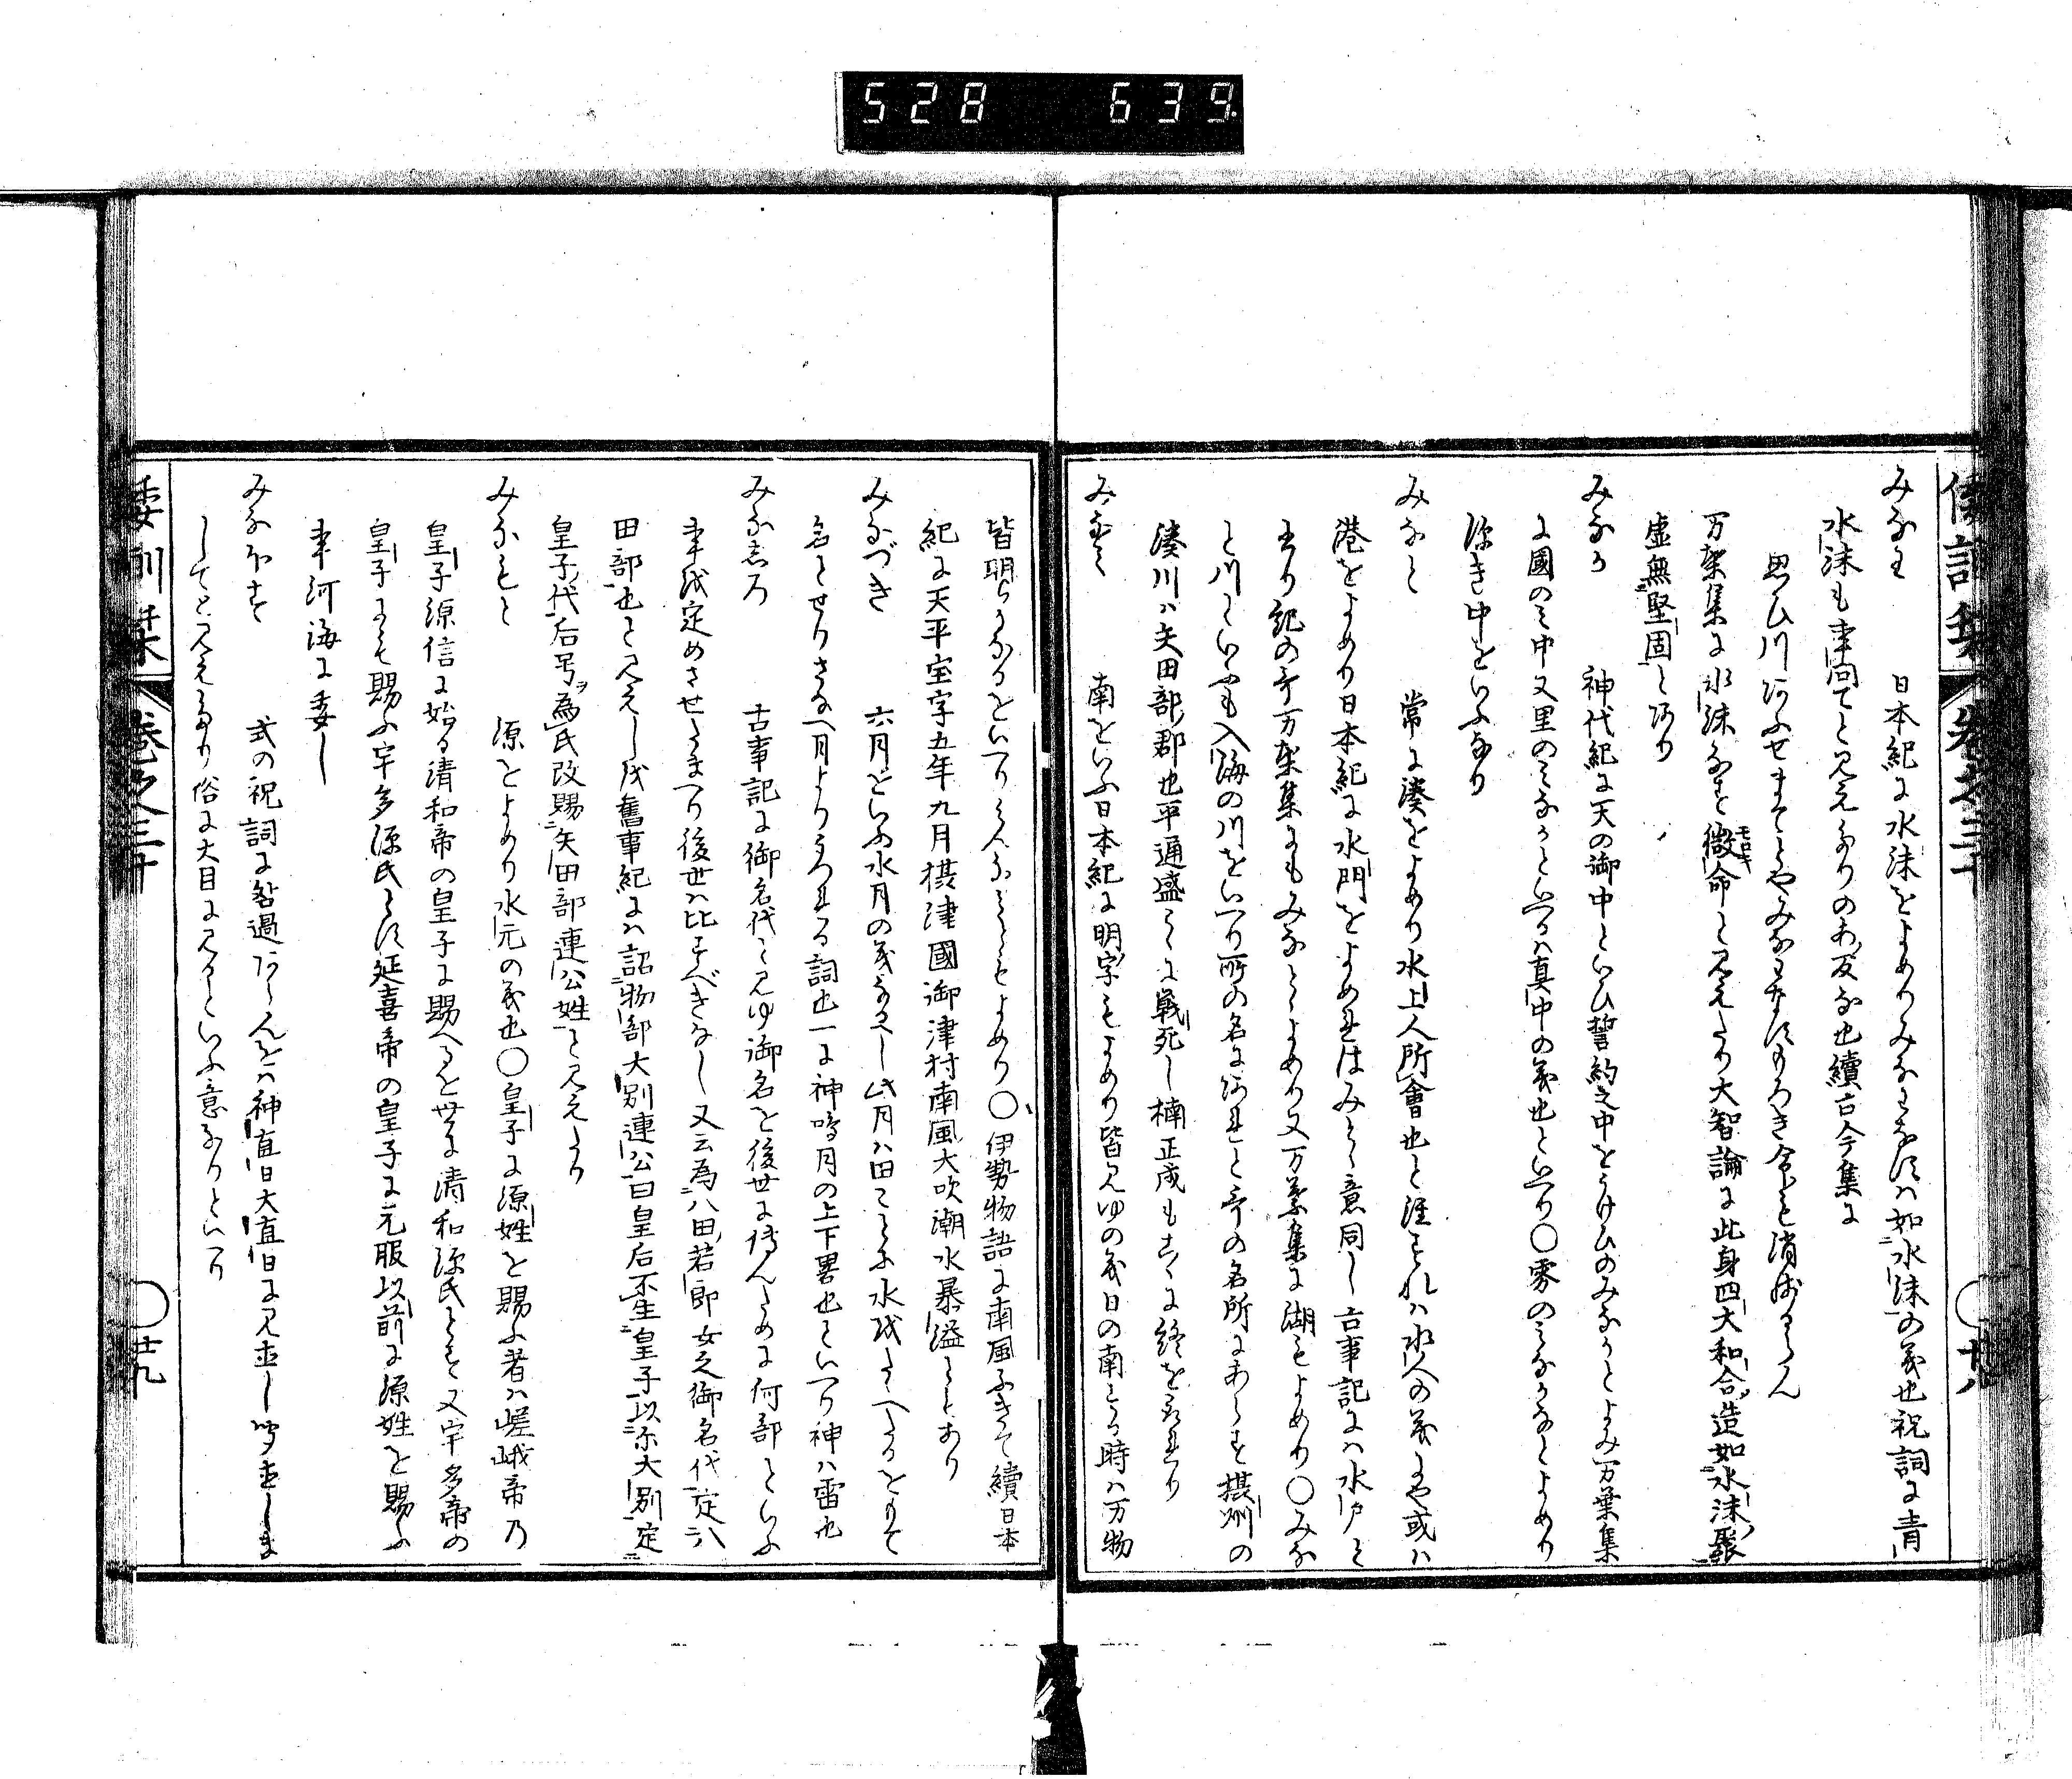 528 639
倭訓栞 巻之三十 ○廿八
みなわ 日本紀に水沫をよめりみなわなすハ如水沫の義也祝詞に青
水沫も事問てと見えたりのあ反な也續古今集に
思ひ川あふせまてとやみなわなすもろき命も消残るらん
万葉集に水沫なす微命と見えたり大智論に此身四大和合造如水沫聚
モロキ
虚無堅固とあり
みなか 神代紀に天の御中といひ誓約之中をうけひのみなかとよみ万葉集
に國のみ中又里のみなかといへるハ真中の義也といへり○雰のみなかなとよめり
深き中をいふなり
みなと 常に湊をよめり水上人所會也と注すれハ水人の義にや或ハ
港をよめり日本紀に水門をよめるはみと意同し古事記にハ水戸と
あり紀の哥万葉集にもみなとよめり又万葉集に湖もよめり○みな
と川といふも入海の川をいへり所の名にあれと哥の名所にあらす摂州の
湊川ハ矢田部郡也平通盛こゝに戦死し楠正成もこゝに終を取れり
みなみ 南をいふ日本紀に明字もよめり皆見ゆの義日の南する時ハ万物
皆明らかなるをいへりみんなみともよめり○伊勢物語に南風ふきて續日本
紀に天平宝字五年九月摂津國御津村南風大吹潮水暴溢とあり
みなづき 六月をいふ水月の義なるへし此月ハ田ことに水をたゝへたるをもて
名とせりさなへ月よりうつれる詞也一に神鳴月の上下畧也といへり神ハ雷也
みなしろ 古事記に御名代と見ゆ御名を後世に傳んために何部といふ
事を定めさせたまへり後世ハ比すべきなし又云為八田若郎女之御名代定八
田部也と見えしを舊事紀にハ詔物部大別連公曰皇后不生皇子以汝大別定
皇子代后号為氏改賜矢田部連公姓と見えたり
みなもと 源をよめり水元の義也○皇子に源姓を賜ふ者ハ嵯峨帝乃
皇子源信に始る清和帝の皇子に賜へるを世に清和源氏とす又宇多帝の
皇子にも賜ふ宇多源氏とす延喜帝の皇子に元服以前に源姓を賜ふ
事河海に委し
みなほす 式の祝詞に咎過あらんをハ神直日大直日に見直し聞直しま
してと見えたり俗に大目に見るといふ意なりといへり
倭訓栞 巻之三十 ○廿九